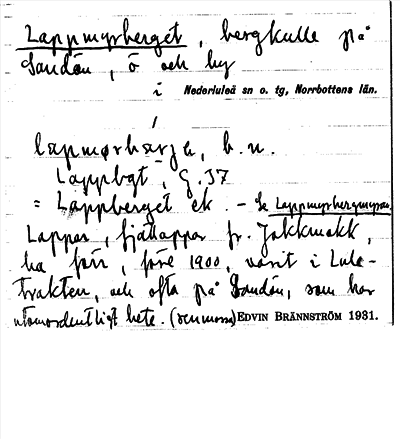 Lappmyrberget, bergkulle på
Sandön, ö och by
i Nederluleå sn o. tg, Norrbottens län.
lapmørbärje, b.n.
Lappbgt, G.37
= Lappberget ek. - Se Lappmyrbergmyran
Lappar, fjällappar fr. Jokkmokk,
ha förr, före 1900, varit i Lule-
trakten, och ofta på Sandön, som har
utomordentligt bete. (renmossa) EDVIN BRÄNNSTRÖM 1931.